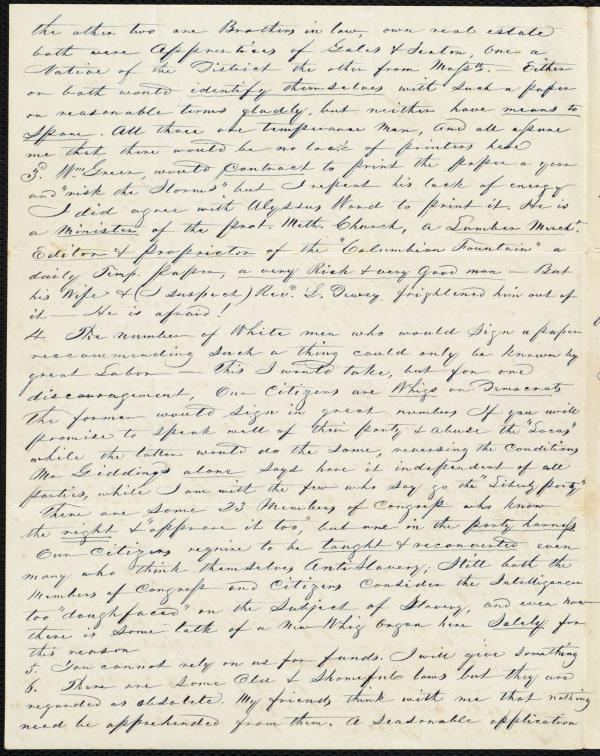 the other two are Brothers in law, own real estate
both were Apprentices of Gales & Seaton, One a
Native of the District the other from Massts. — Either
or both would identify themselves with such a paper
on reasonable terms gladly, but neither have means to
Spare. All three are temperance Men, and all assure
me that there would be no lack of printers here
3. Wm Greer, would contract to print the paper a year
and "risk the Storms" but I repeat his lack of energy
I did agree with Ulyssus Ward to print it. He is
a Minister of the prot. Meth. Church, a Lumber Mercht.
Editor & proprietor of the "Columbian Fountain" a
daily Temp. Paper, a very Rich & very Good man — But
his Wife & (I suspect) Revd. L. Dewey frightened him out of
it — He is afraid!
4 The number of White men who would Sign a paper
reccommending such a thing could only be known by
great Labor — This I would take, but for one
discouragement, Our Citizens are Whigs or Democrats
the former would Sign in great numbers If you will
promise to speak well of their party & abuse the "Locos"
while the latter would do the same, reversing the Conditions
Mr Giddings alone says have it independent of all
parties, while I am with the few who say go the "Liberty party"
There are some 23 Members of Congress who know
the right & "approve it too," but are in the party harness
Our Citizens require to be taught & reconverted even
many who think themselves AntiSlavery; Still both the
Members of Congress and Citizens Consider the Intelligencer
too "doughfaced" on the Subject of Slavery, and even now
there is some talk of a New Whig Organ here Solely for
this reason
5. You cannot rely on us for funds. I will give something
6. There are some Old & Shameful laws but they are
regarded as obsolete. My friends think with me that nothing
need be apprehended from them. A seasonable application